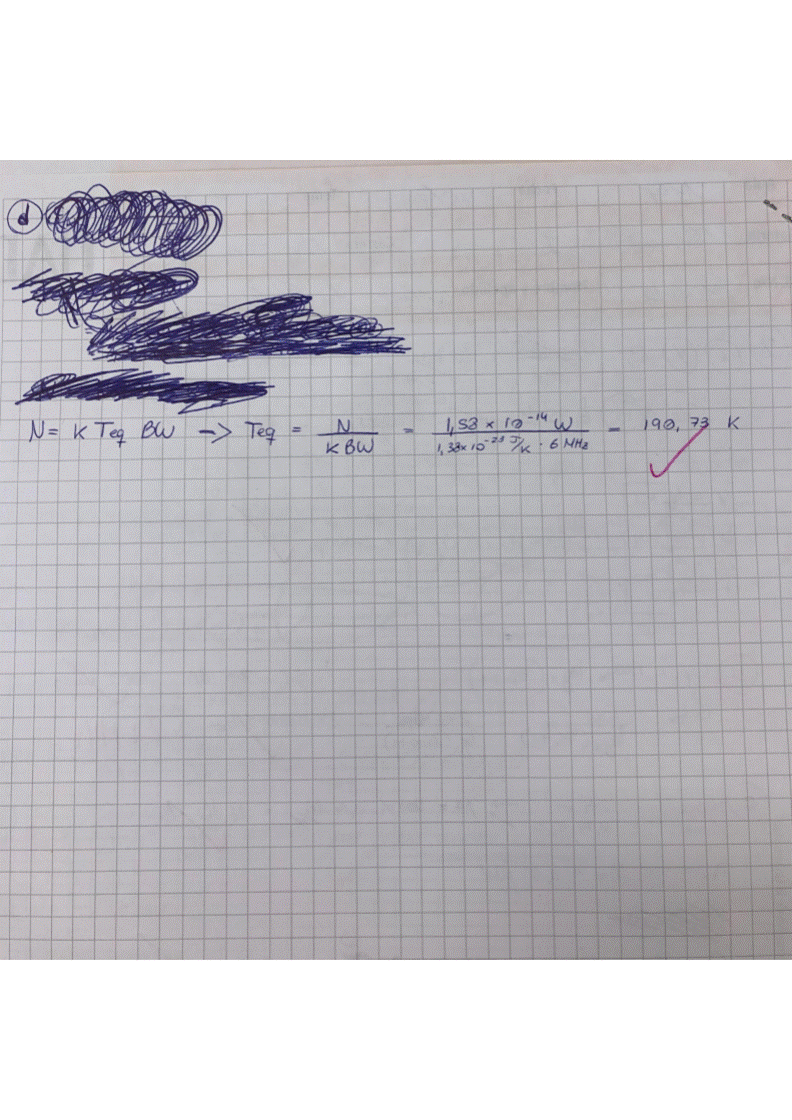 d
N = K Teq BW -> Teq = N / K BW = 1,58 x 10^-14 W / 1,38x10^-23 J/K · 6 MHz = 190,73 K